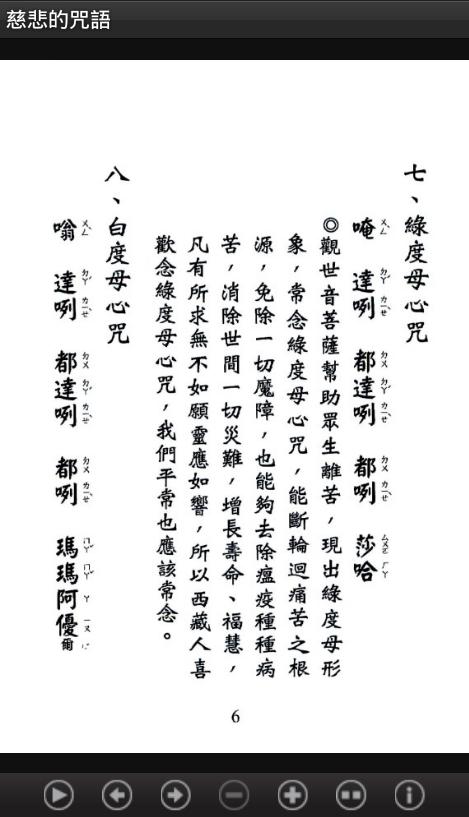 慈悲的咒語
七、綠度母心咒
唵 達咧 都達咧 都咧 莎哈
ㄨㄥ ㄉㄚˊ ㄌㄧㄝˋ ㄉㄨ ㄉㄚˊ ㄌㄧㄝˋ ㄉㄨ ㄌㄧㄝˋ ㄙㄨㄛ ㄏㄚ
◎觀世音菩薩幫助眾生離苦，現出綠度母形
象，常念綠度母心咒，能斷輪迴痛苦之根
源，免除一切魔障，也能夠去除瘟疫種種病
苦，消除世間一切災難，增長壽命、福慧，
凡有所求無不如願靈應如響，所以西藏人喜
歡念綠度母心咒，我們平常也應該常念。
八、白度母心咒
嗡 達咧 都達咧 都咧 瑪瑪阿優爾
ㄨㄥ ㄉㄚˊ ㄌㄧㄝˋ ㄉㄨ ㄉㄚˊ ㄌㄧㄝˋ ㄉㄨ ㄌㄧㄝˋ ㄇㄚˇ ㄇㄚˇ ㄚ ㄧㄡ
6